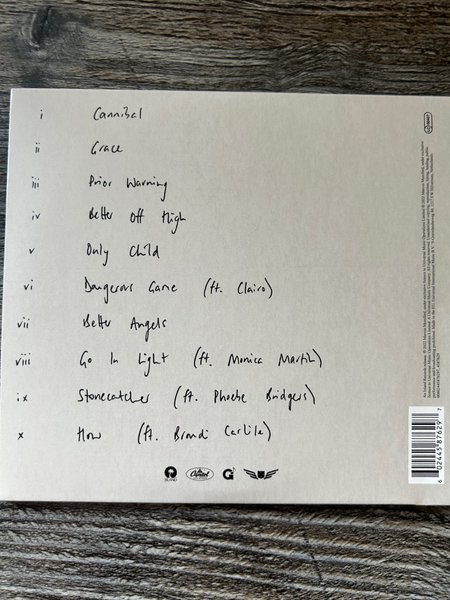 i Cannibal
ii Grace
iii Prior Warning
iv Better Off High
v Only Child
vi Dangerous Game (ft. Clairo)
vii Better Angels
viii Go In Light (ft. Monica Martin)
ix Stonecatcher (ft. Phoebe Bridgers)
x How (ft. Brandi Carlile)
ISLAND
Capitol
6 02445 87629 7